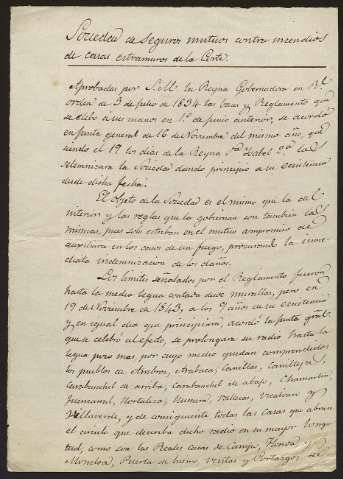 Sociedad de Seguros mutuos contra incendios
de casas extramuros de la Corte.
Aprobadas por S.M. la Reyna Gobernadora en Rl.
orden de 3 de Julio de 1834 las bases y Reglamento que
se elebó a sus manos en 1º de Junio anterior, se acordó
en Junta general de 16 de Noviembre del mismo año, que
siendo el 19 los dias de la Reyna Dª Isabel 2ª la
solemnizara la Sociedad dando principio a su existencia
desde dicha fecha.
El objeto de la Sociedad es el mismo que la del
interior y las reglas que la gobiernan son tambien las
mismas, pues solo estriban en el mutuo compromiso de
auxiliarse en los casos de un fuego, procurando la inme-
diata indemnizacion de los daños.
Los limites señalados por el Reglamento fueron
hasta la media legua contada desde murallas, pero en
19 de Noviembre de 1843, a los 9 años de su existencia
y en igual dia que principiara, acordó la Junta gral.
que se celebró al efecto, se prolongara su radio hasta la
legua poco mas, por cuyo medio quedan comprendidos
los pueblos de Ambroz, Aravaca, Canillas, Canillejas,
Carabanchel de arriba, Carabanchel de abajo, Chamartin,
Fuencarral, Hortaleza, Húmera, Vallecas, Vicalvaro y
Villaverde, y de consiguiente todas las Casas que abraza
el circulo que describa dicho radio en su mayor longi-
tud, como son las Reales casas de Campo, Florida y
Moncloa, Puerta de hierro, Ventas y Portazgos de